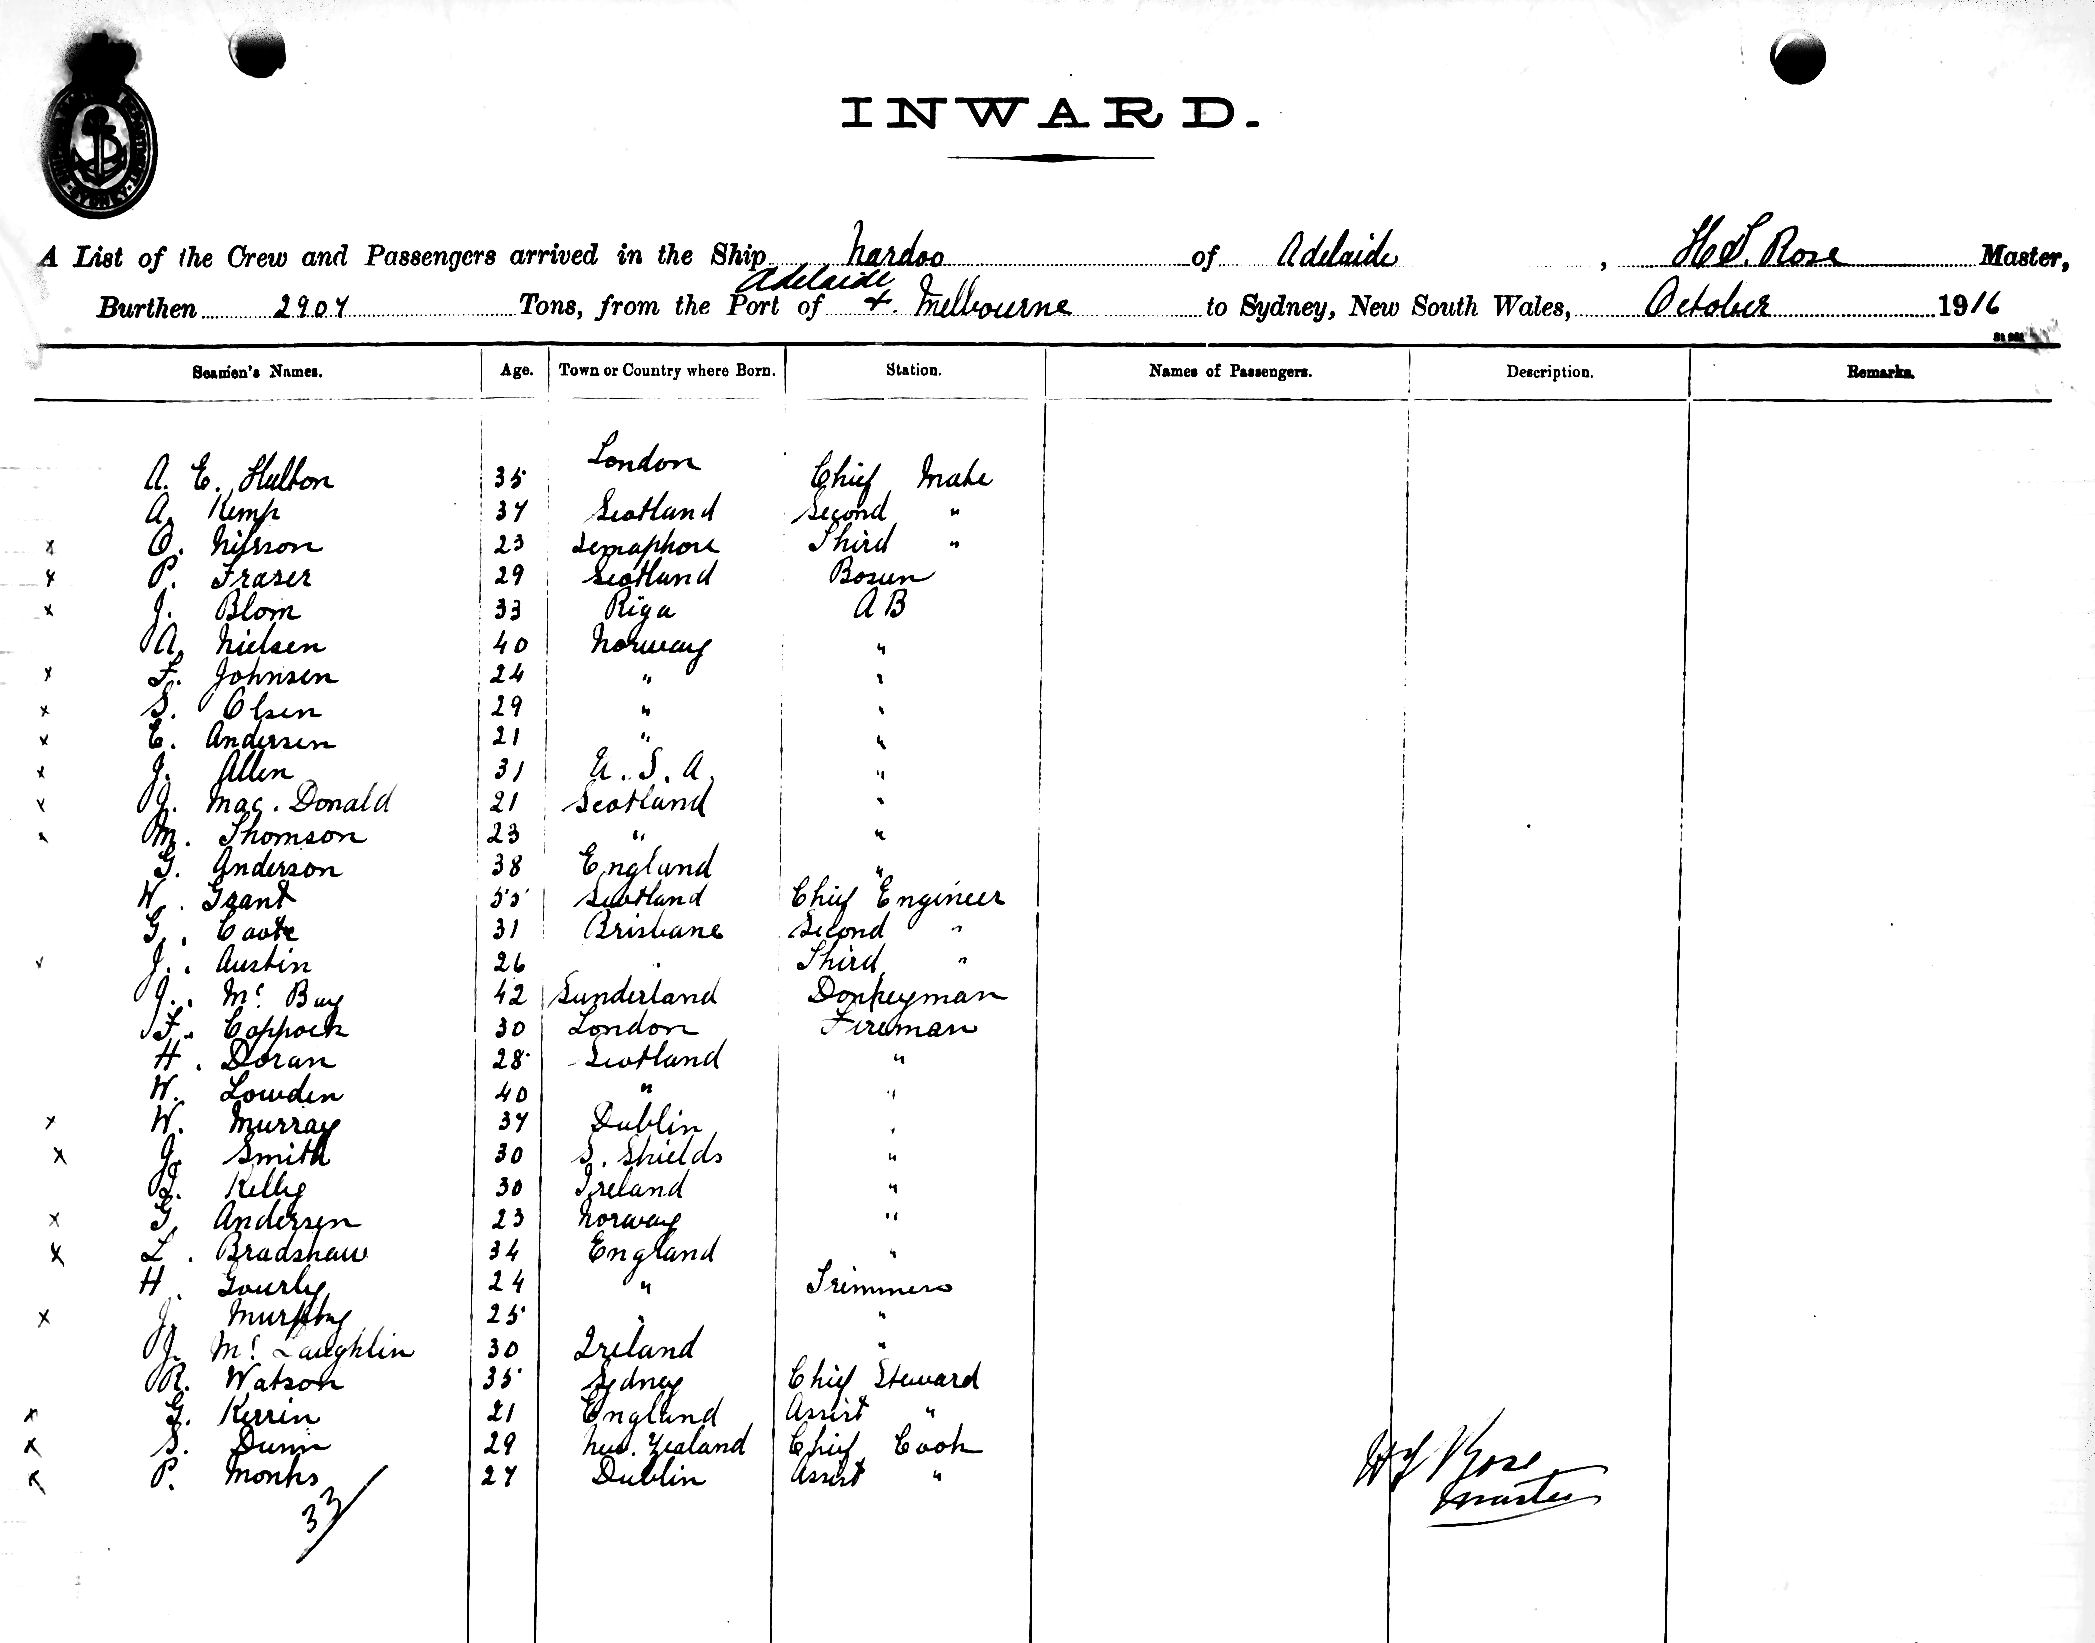 INWARD.
A List of the Crew and Passengers arrived in the Ship Nardoo of Adelaide, H S. Rose Master,
Adelaide
Burthen 2907 Tons, from the Port of & Melbourne to Sydney, New South Wales, October 1916
Seamen's Names. Age. Town or Country where Born. Station. Names of Passengers. Description. Remarks.
A. E. Hulton 35 London Chief Mate
A. Kemp 37 Scotland Second "
x O. Nilsson 23 Semaphore Third "
x P. Fraser 29 Scotland Bosun
x J. Blom 33 Riga A B
A. Nielsen 40 Norway "
x F. Johnsen 24 " "
x S. Olsen 29 " "
x E. Andersen 21 " "
x J. Allen 31 U. S. A. "
x J. Mac. Donald 21 Scotland "
x M. Thomson 23 " "
G. Anderson 38 England "
W. Grant 55 Scotland Chief Engineer
G. Coote 31 Brisbane Second "
J. Austin 26 " Third "
J. Mc Buy 42 Sunderland Donkeyman
F. Coppock 30 London Fireman
H. Doran 28 Scotland "
W. Lowden 40 " "
x W. Murray 37 Dublin "
x J. Smith 30 S. Shields "
J. Kelly 30 Ireland "
x G. Andersen 23 Norway "
x L. Bradshaw 34 England "
H. Gourly 24 " Trimmers
x J. Murphy 25 " "
J. Mc Laughlin 30 Ireland "
R. Watson 35 Sydney Chief Steward
x G. Kerrin 21 England Assist "
x S. Dunn 29 New. Zealand Chief Cook
x P. Monks 27 Dublin Assist "
33
H S Rose
Master